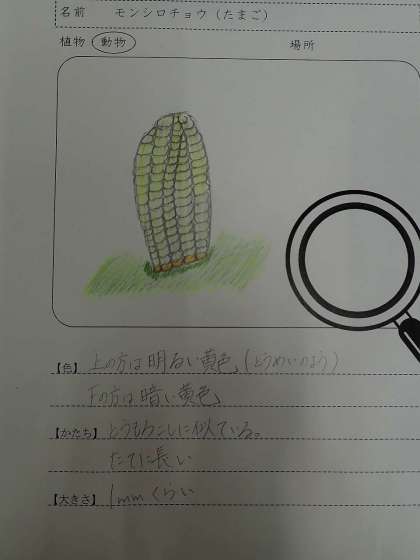 名前 モンシロチョウ(たまご)
植物 動物 場所
【色】上の方は明るい黄色。(とうめいのよう)
下の方は暗い黄色。
【かたち】とうもろこしに似ている。
たてに長い
【大きさ】1mmくらい